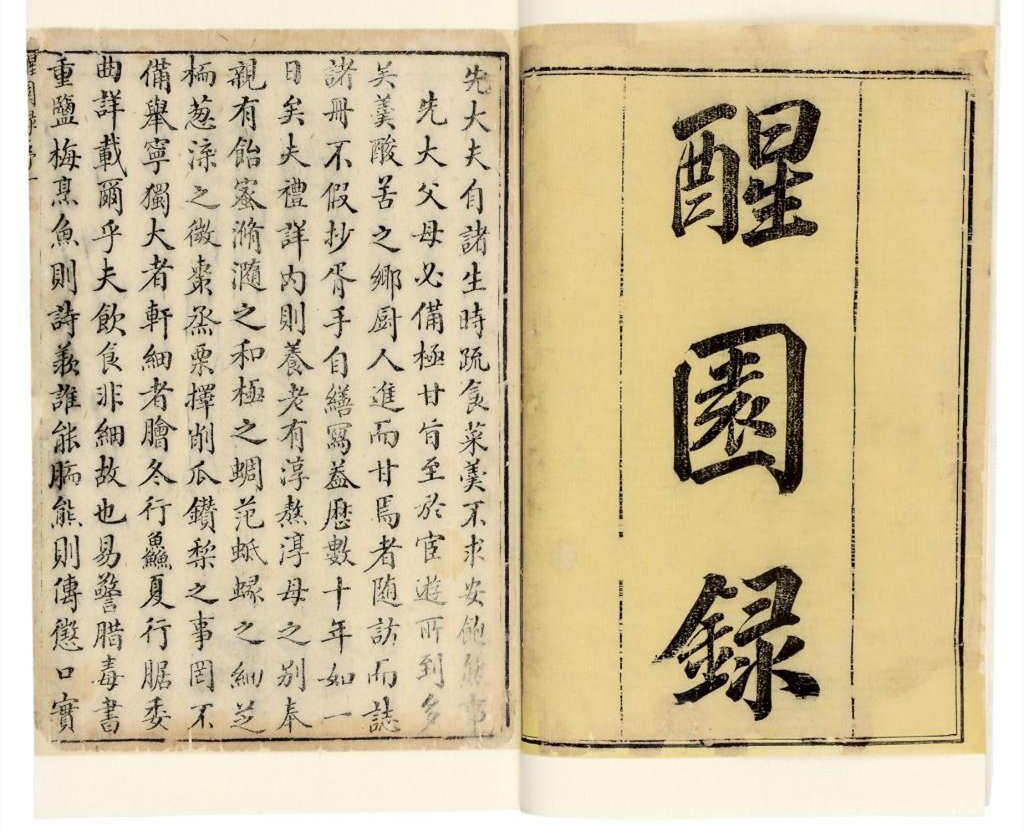 醒園録
先大夫自諸生時疏食菜羹不求安飽然事
先大父母必備極甘旨至於宦遊所到多
吴羹酸苦之鄉厨人進而甘焉者随訪而誌
諸冊不假抄胥手自繕寫葢厯數十年如一
日矣夫禮詳内則養老有淳熬淳母之别奉
親有飴蜜滫瀡之和極之蜩范蚳蝝之細芝
栭葱渫之微棗烝栗擇削瓜鑽梨之事罔不
備舉寧獨大者軒細者膾冬行鱻夏行腒委
曲詳載爾乎夫飲食非細故也易警腊毒書
重鹽梅烹魚則詩羨誰能胹熊則傳懲口實